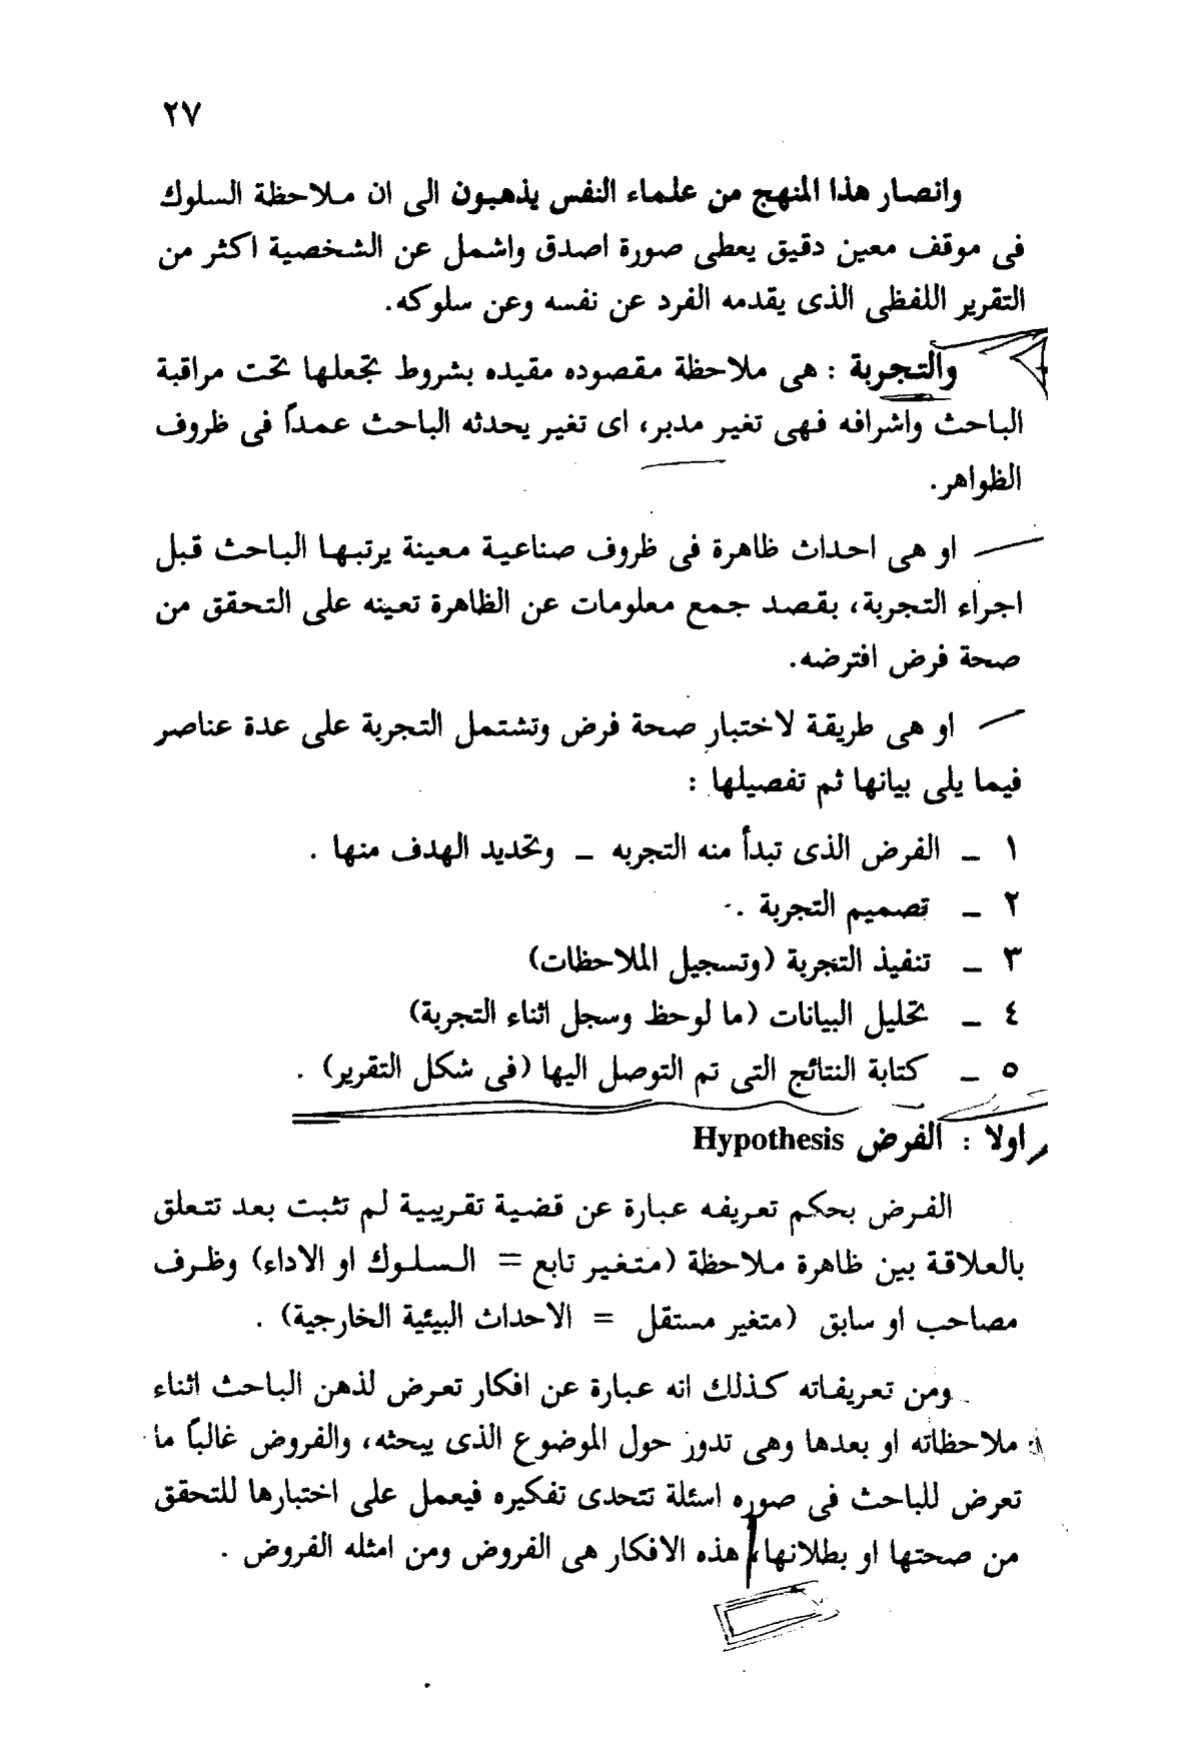 ٢٧
وانصار هذا المنهج من علماء النفس يذهبون الى ان ملاحظة السلوك
فى موقف معين دقيق يعطى صورة اصدق واشمل عن الشخصية اكثر من
التقرير اللفظى الذى يقدمه الفرد عن نفسه وعن سلوكه.
والتجربة : هى ملاحظة مقصوده مقيده بشروط تجعلها تحت مراقبة
الباحث واشرافه فهى تغير مدبر، اى تغير يحدثه الباحث عمداً فى ظروف
الظواهر.
او هى احداث ظاهرة فى ظروف صناعية معينة يرتبها الباحث قبل
اجراء التجربة، بقصد جمع معلومات عن الظاهرة تعينه على التحقق من
صحة فرض افترضه.
او هى طريقة لاختبار صحة فرض وتشتمل التجربة على عدة عناصر
فيما يلى بيانها ثم تفصيلها :
١ – الفرض الذى تبدأ منه التجربه – وتحديد الهدف منها .
٢ – تصميم التجربة .
٣ – تنفيذ التجربة (وتسجيل الملاحظات)
٤ – تحليل البيانات (ما لوحظ وسجل اثناء التجربة)
٥ – كتابة النتائج التى تم التوصل اليها (فى شكل التقرير) .
اولا : الفرض Hypothesis
الفرض بحكم تعريفه عبارة عن قضية تقريبية لم تثبت بعد تتعلق
بالعلاقة بين ظاهرة ملاحظة (متغير تابع = السلوك او الاداء) وظرف
مصاحب او سابق (متغير مستقل = الاحداث البيئية الخارجية) .
ومن تعريفاته كذلك انه عبارة عن افكار تعرض لذهن الباحث اثناء
ملاحظاته او بعدها وهى تدور حول الموضوع الذى يبحثه، والفروض غالباً ما
تعرض للباحث فى صوره اسئلة تتحدى تفكيره فيعمل على اختبارها للتحقق
من صحتها او بطلانها، هذه الافكار هى الفروض ومن امثله الفروض .